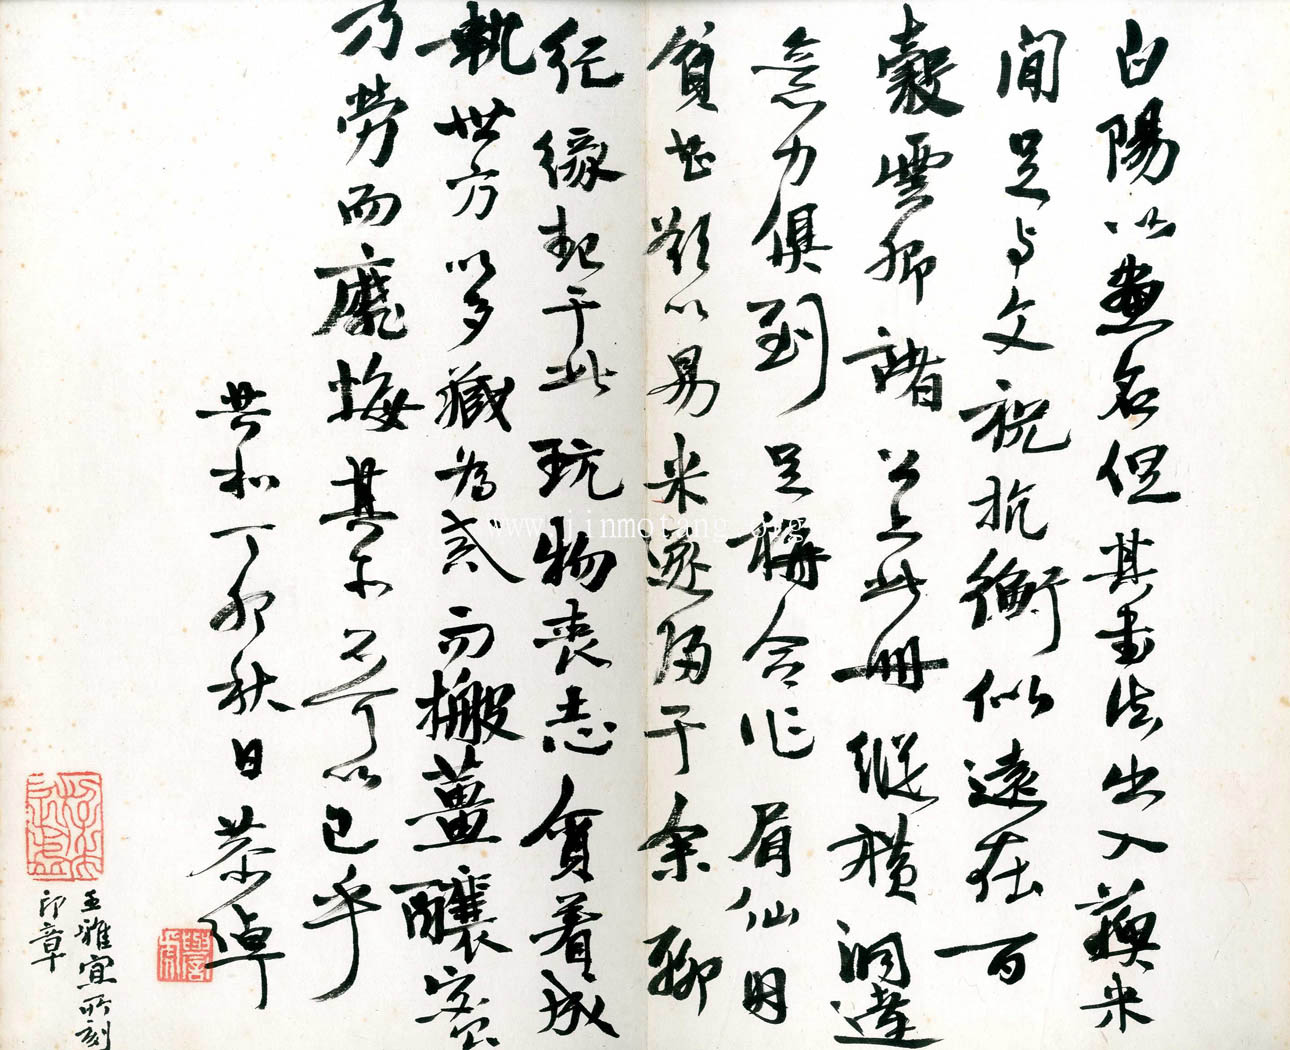 白陽以畫名但其書法出入蘇米
間足与文祝抗衡似遠在百
穀雲卿諸公上此冊縱橫洞達
意力俱到足稱合作眉仙明
貧甚欲以易米遂歸于余聊
紀緣起于此玩物喪志貪着成
執世方以多藏為惑而搬薑釀蜜
乃勞而靡悔其亦可以已乎
共和丁卯秋日恭綽
王雅宜所刻
印章
www.jinmotang.org